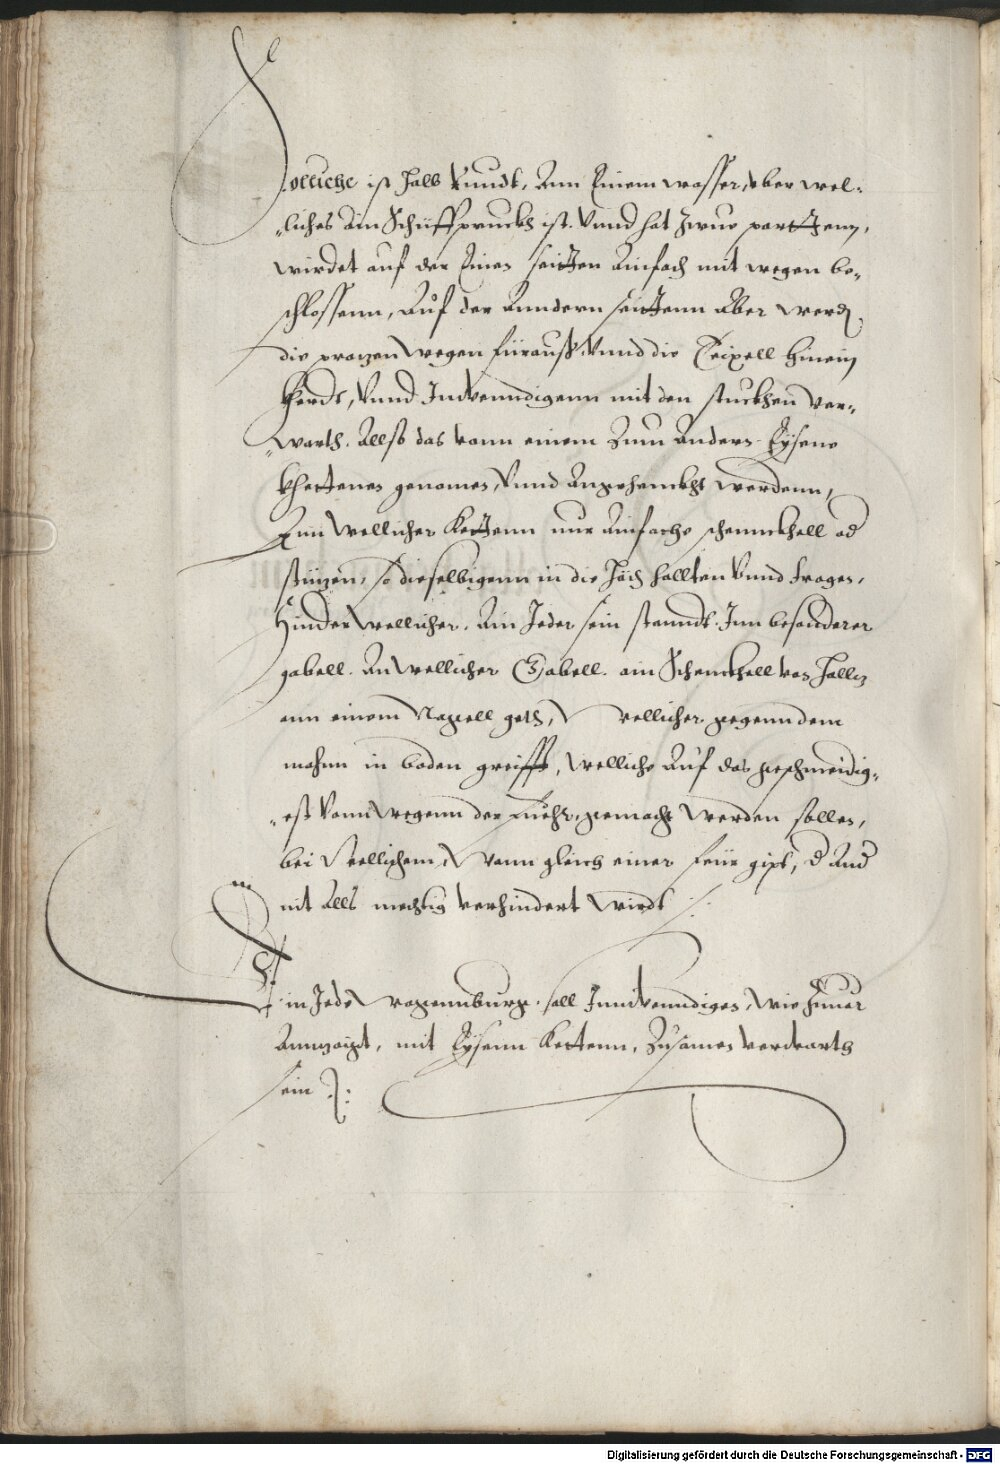 Solliche ist halb Rundt, Ann Einem wasser, vber wel-
liches Ain Schiffpruckh ist. Vnnd hat zwue porttenn,
wirdet auf der Einen seitten Ainfach mit wegen be-
schlossenn, Auf der Anndern seittenn Aber werd
die prozen wegen fürauß, Vnnd die Teixell hinein
kherdt, Vnnd Inwenndigenn mit den stuckhen ver-
warth. Allso das vonn einem Zum Andern Eysene
khettenen genomen, Vnnd Angehennckht werdenn,
Ann wellicher Kettenn nur Ainfache schennckhell od
stüzen, so dieselbigenn in die Höch hallten Vnnd tragen,
Hinder wellicher, Ain Jeder sein stanndt Inn besonderer
gabell. An wellicher Gabell ain Schenckhell von Holltz
ann einem Nagell geth, Wellicher gegenn dem
mahnn in boden greifft, welliche Auf das geschmeidig-
est Vonn wegenn der Fuehr, gemacht werden sollen,
bei Wellichem, Wann gleich einer feur gipt, d And
nit Alls mechtig verhindert wirdt
Ein Jede Wagennburg soll Inwenndigen, Wie hinuor
Annzaigt, mit Eysenn Kettenn, Zusamen verwarth
sein
Digitalisierung gefördert durch die Deutsche Forschungsgemeinschaft - DFG